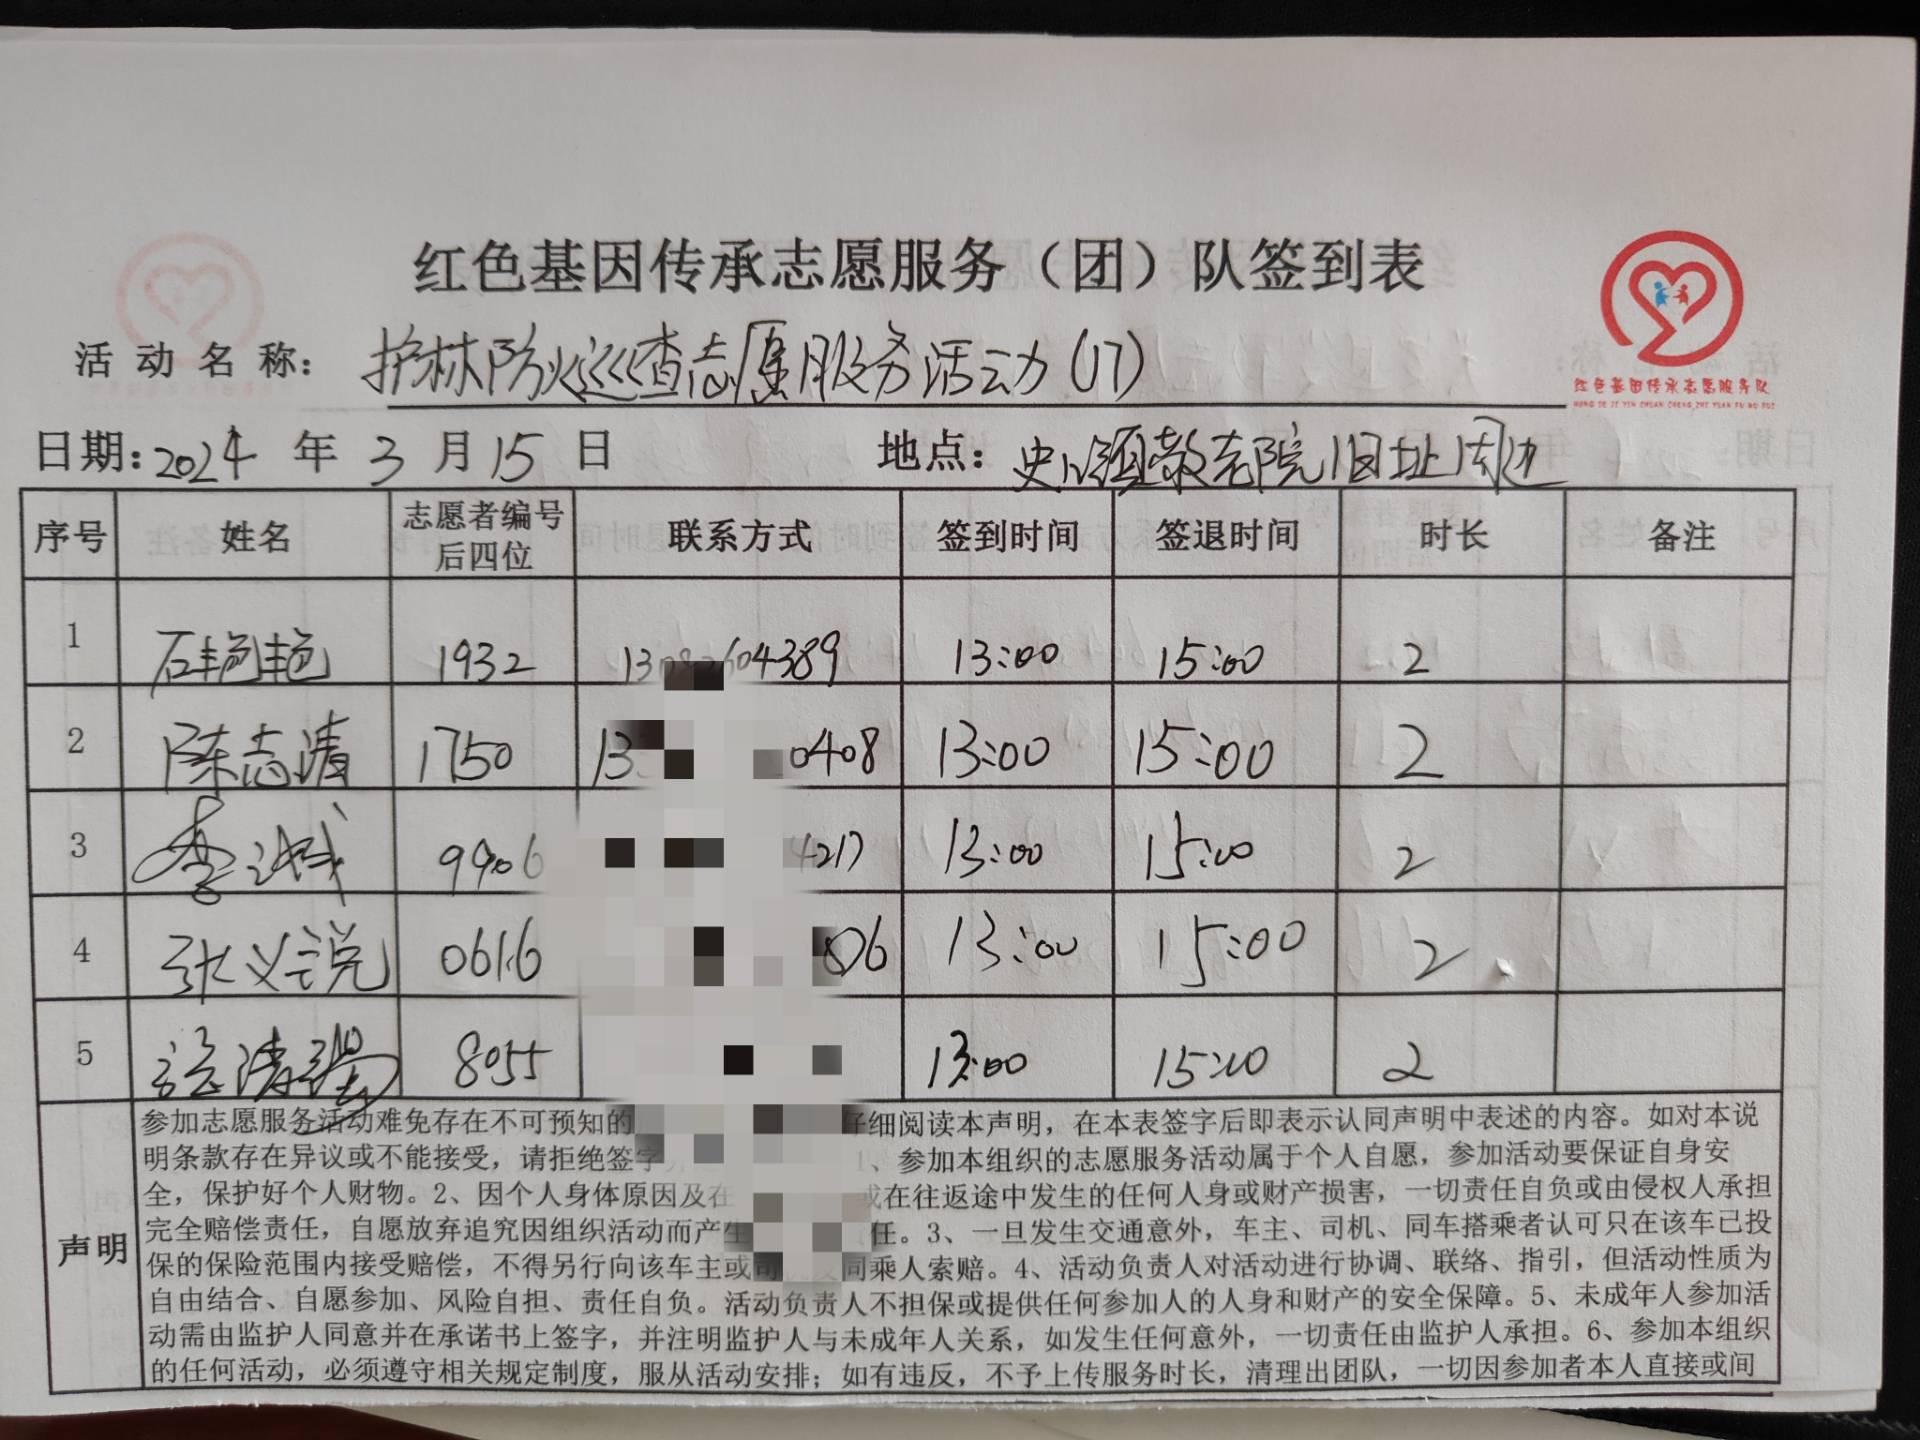 红色基因传承志愿服务（团）队签到表
红色基因传承志愿服务队
HONG SE JI YIN CHUAN CHENG ZHI YUAN FU WU DUI
活动名称：护林防火巡查志愿服务活动(17)
日期：2024年3月15日 地点：教志院旧址周边
序号 姓名 志愿者编号后四位 联系方式 签到时间 签退时间 时长 备注
1 石艳艳 1932 604389 13:00 15:00 2
2 陈志清 1750 13 0408 13:00 15:00 2
3 李诚 9406 4217 13:00 15:00 2
4 张义锐 0616 06 13:00 15:00 2
5 8055 13:00 15:00 2
声明
参加志愿服务活动难免存在不可预知的 仔细阅读本声明，在本表签字后即表示认同声明中表述的内容。如对本说
明条款存在异议或不能接受，请拒绝签字 1、参加本组织的志愿服务活动属于个人自愿，参加活动要保证自身安
全，保护好个人财物。2、因个人身体原因及在 或在往返途中发生的任何人身或财产损害，一切责任自负或由侵权人承担
完全赔偿责任，自愿放弃追究因组织活动而产生 任。3、一旦发生交通意外，车主、司机、同车搭乘者认可只在该车已投
保的保险范围内接受赔偿，不得另行向该车主或 同乘人索赔。4、活动负责人对活动进行协调、联络、指引，但活动性质为
自由结合、自愿参加、风险自担、责任自负。活动负责人不担保或提供任何参加人的人身和财产的安全保障。5、未成年人参加活
动需由监护人同意并在承诺书上签字，并注明监护人与未成年人关系，如发生任何意外，一切责任由监护人承担。6、参加本组织
的任何活动，必须遵守相关规定制度，服从活动安排；如有违反，不予上传服务时长，清理出团队，一切因参加者本人直接或间